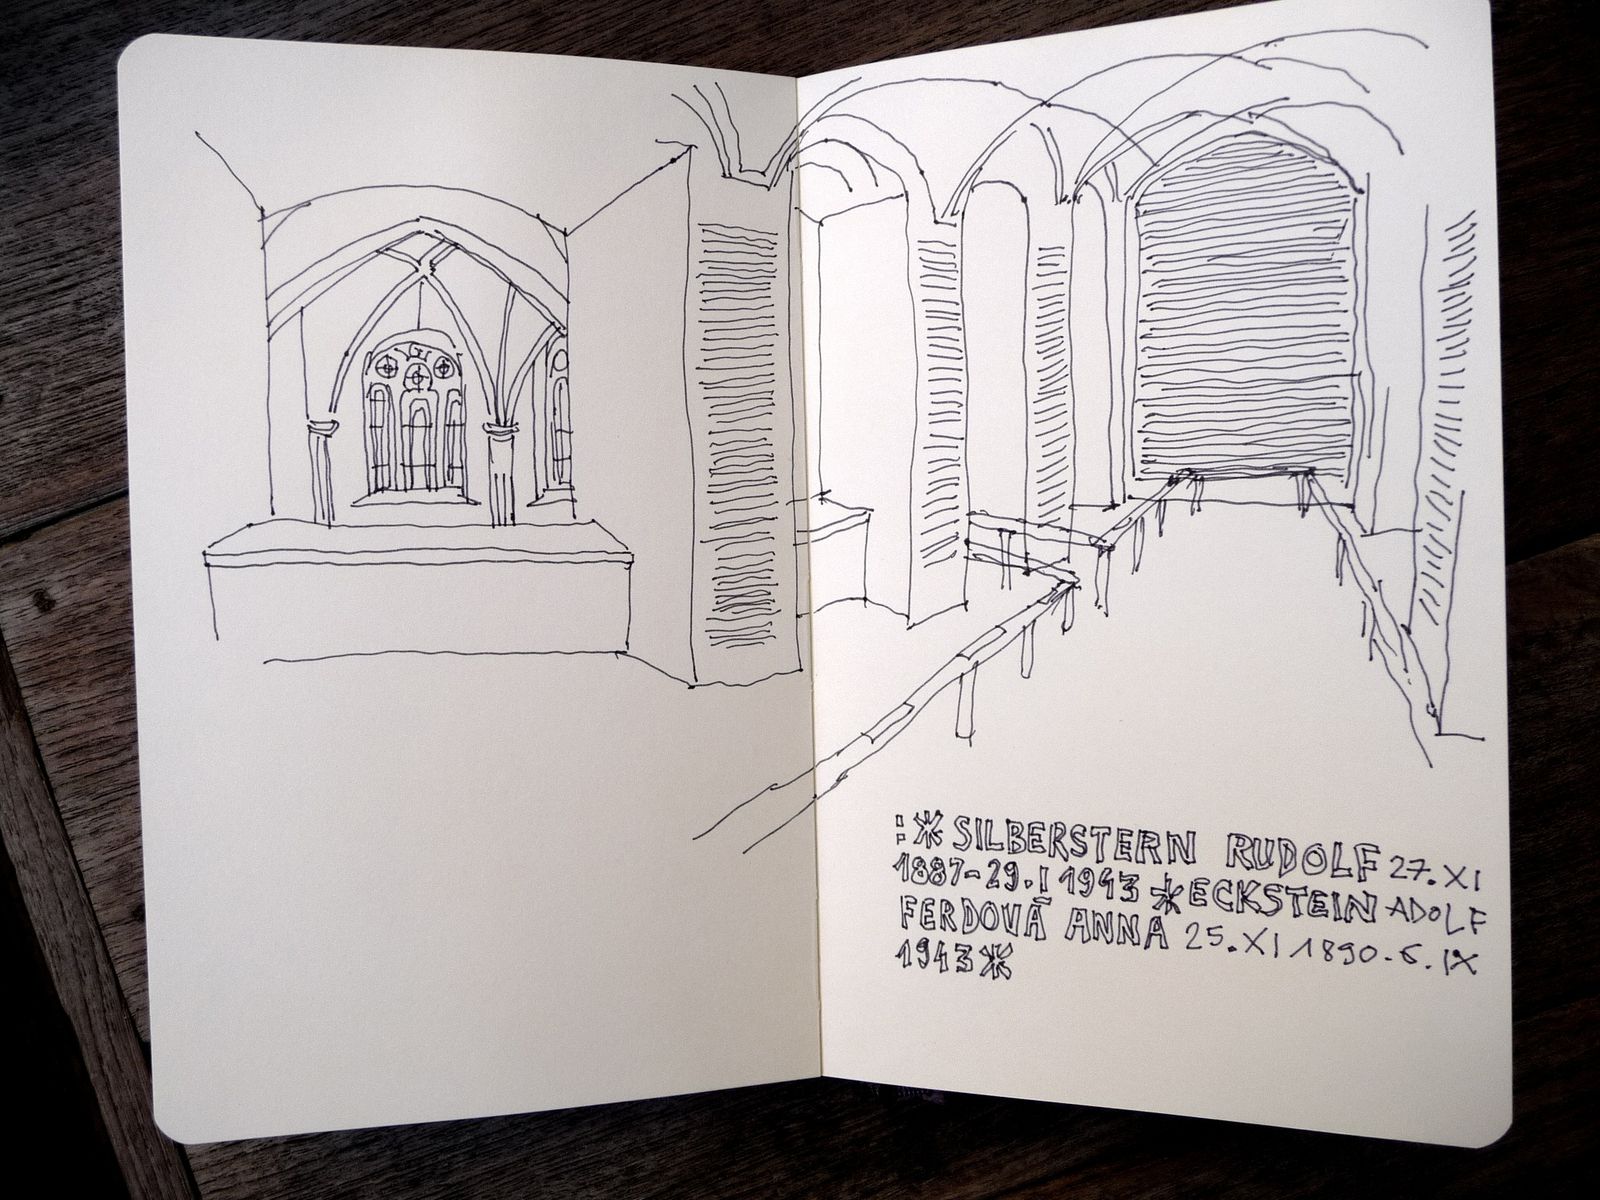 :* SILBERSTERN RUDOLF 27.XI
1887-29.I 1943 *ECKSTEIN ADOLF
FERDOVÁ ANNA 25.XI 1890-6.IX
1943*